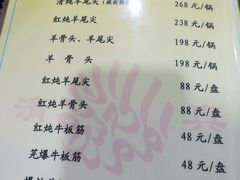 清炖羊尾尖(提前预定) 268元/锅
红炖羊尾尖 238元/锅
羊骨头、羊尾尖 198元/锅
羊骨头 198元/锅
红炖羊尾尖 88元/盘
红炖羊骨头 88元/盘
红炖牛板筋 48元/盘
芫爆牛板筋 48元/盘